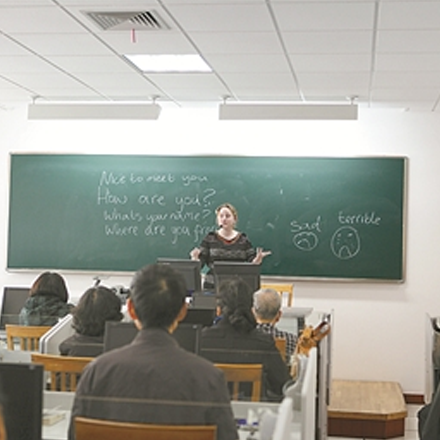 Nice to meet you
How are you?
What's your name?
Where are you
sad
terrible